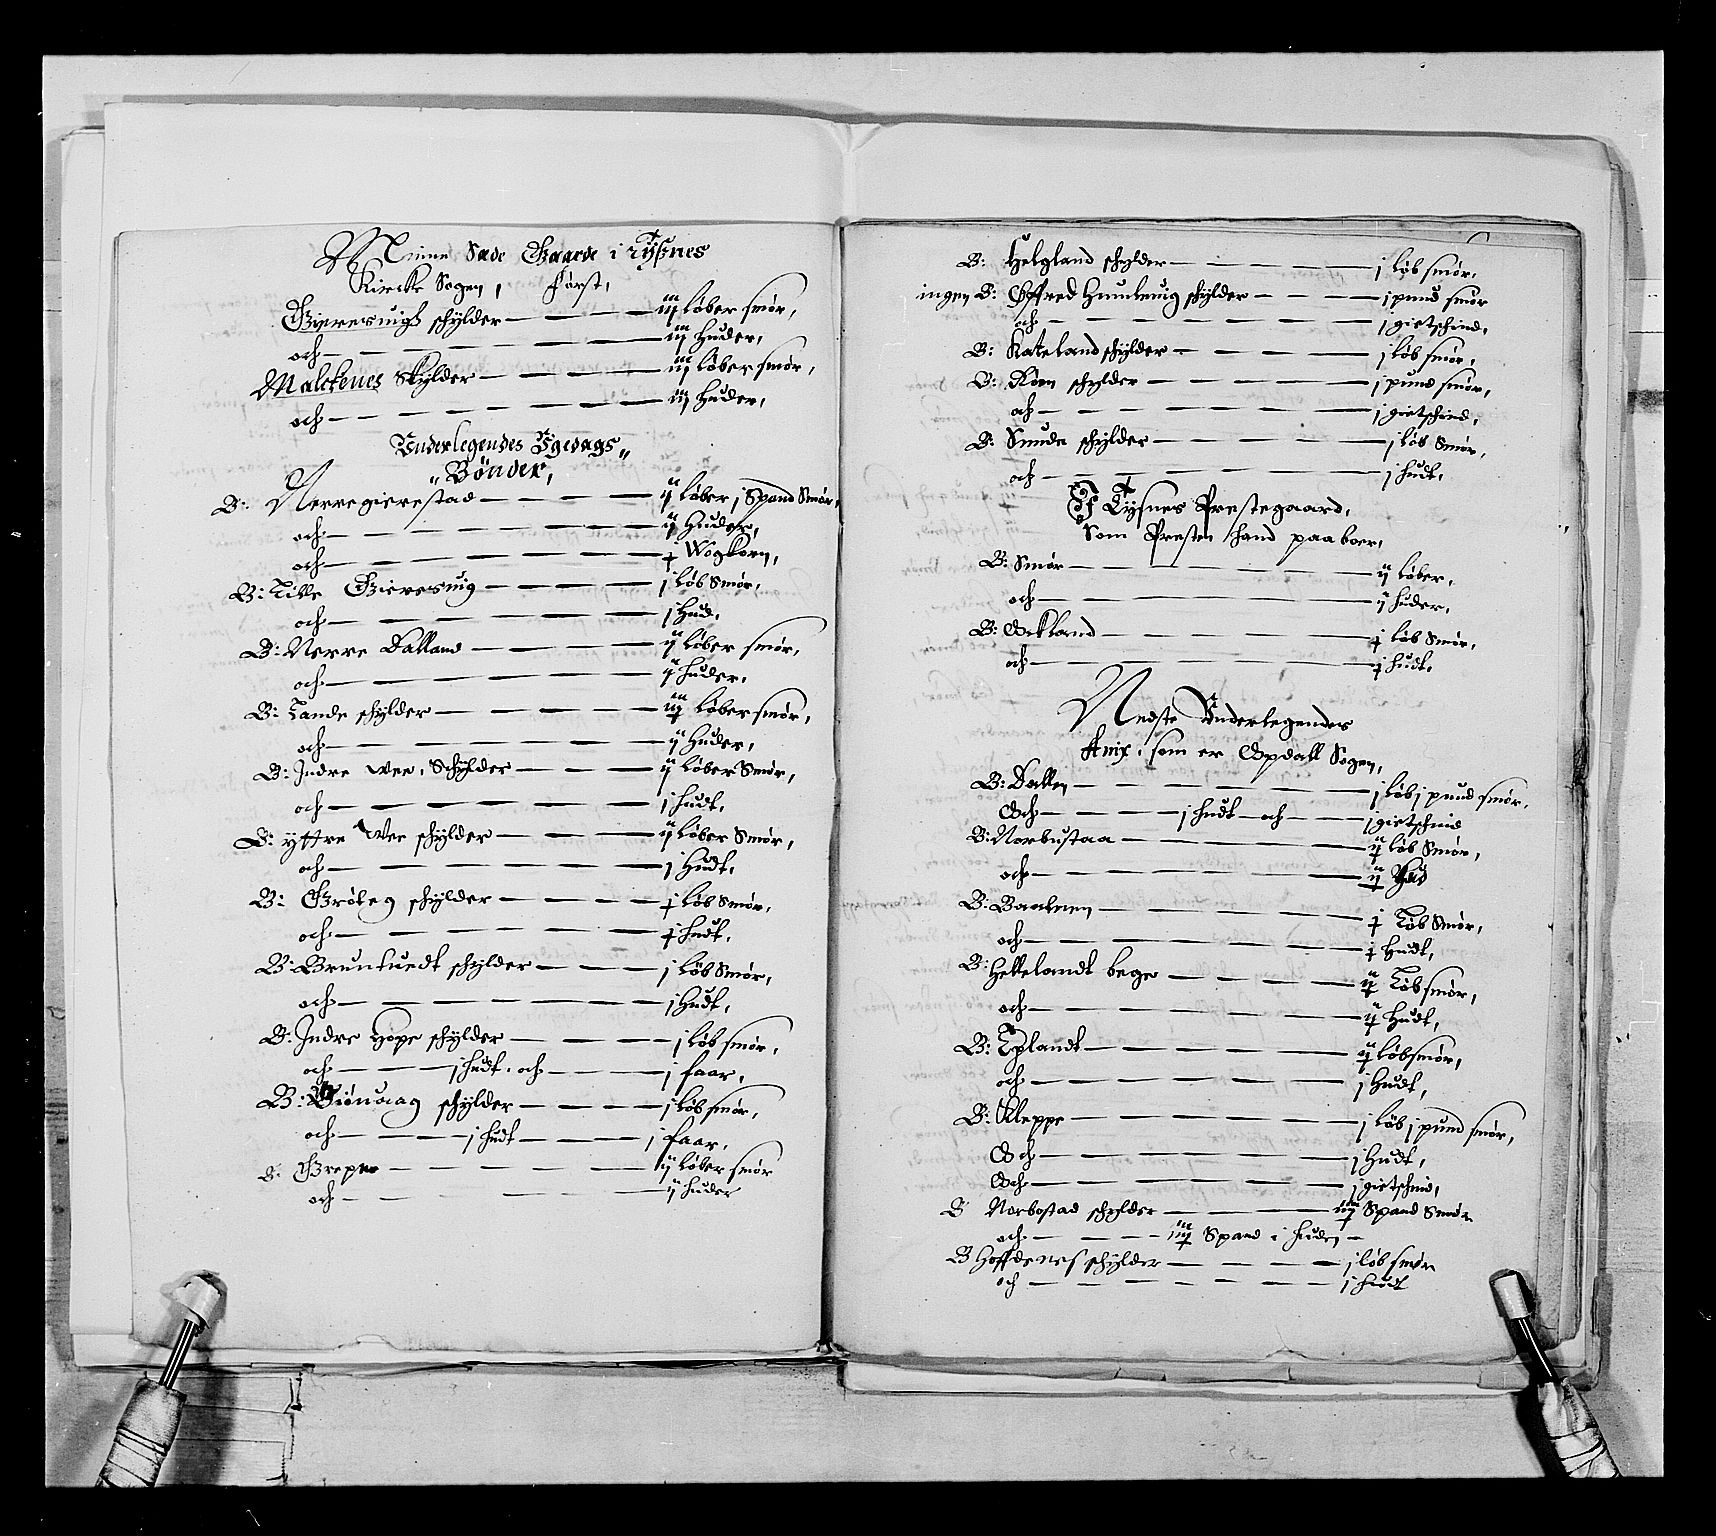 Minne Sæde Gaarde i Tÿsnes
Kircke Sogen, Først,
Gieresuigh schÿlder — — — iij løber smør,
och — — — — — iij Huder,
Malckenes Skÿlder — — — iij løber smør,
och — — — — — iij Huder,
Vnderlegendes Vgedags
Bønder,
B: Nerregierestad — — — ij løber j Spand Smør,
och — — — — — ij Huder,
och — — — — — j Wog korn,
B: Lille Gieresuig — — — j løb Smør,
och — — — — — j Hud,
B: Nerre Dalland — — — ij løber smør,
och — — — — — ij huder,
B: Lande schÿlder — — — løber smør,
och — — — — — ij Huder,
B: Indre Wee, Schÿlder — — — ij løber Smør,
och — — — — — j hudt,
B: ÿttre Wee schÿlder — — — ij løber Smør,
och — — — — — j Hudt,
B: schÿlder — — — løb Smør,
och — — — — — hudt,
B: Bruntuedt schÿlder — — — j løb Smør,
och — — — — — j Hudt,
B: Indre Hope schÿlder — — — j løb smør,
och — — — j hudt, och — — — j faar,
B: schÿlder — — — j løb smør,
och — — — j hudt — — — j faar,
B: Grepe — — — ij løber smør
och — — — — — ij huder
B: Helgland schÿlder — — — j løb smør,
ingen B: Øffred Hunleuig schÿlder — — — j pund smør
och — — — — — j gietschind,
B: Kateland schÿlder — — — j løb smør,
B: Røen schÿlder — — — j pund smør,
och — — — — — j gietschind,
B: Smuda schÿlder — — — j løb Smør,
och — — — — — j hudt,
Tÿsnes Prestegaard,
Som Presten hand paa boer,
B: Smør — — — ij løber,
och — — — — — ij huder,
B: Ockland — — — løb Smør,
och — — — — — hudt,
Nedste Vnderlegendes
Anix, som er Opdall Sogen,
B: Dallen — — — j løb j pund smør,
Och — — — j hudt och — — — j gietschind
B: Norbustaa — — — løb Smør,
och — — — — — Hud
B: Baatnen — — — Løb Smør,
och — — — — — Hudt,
B: Hellelandt bege — — — Løb smør,
och — — — — — Hudt,
B: Vplandt — — — løb smør,
och — — — — — j Hudt,
B: Kleppe — — — j løb j pund smør,
Och — — — — — j Hudt,
Och — — — — — j gietschind,
B Norbostad schÿlder — — — Spand Smør
och — — — Spand i huder —
B Hoffdenes schÿlder — — — j løb smør
och — — — — — j hudt